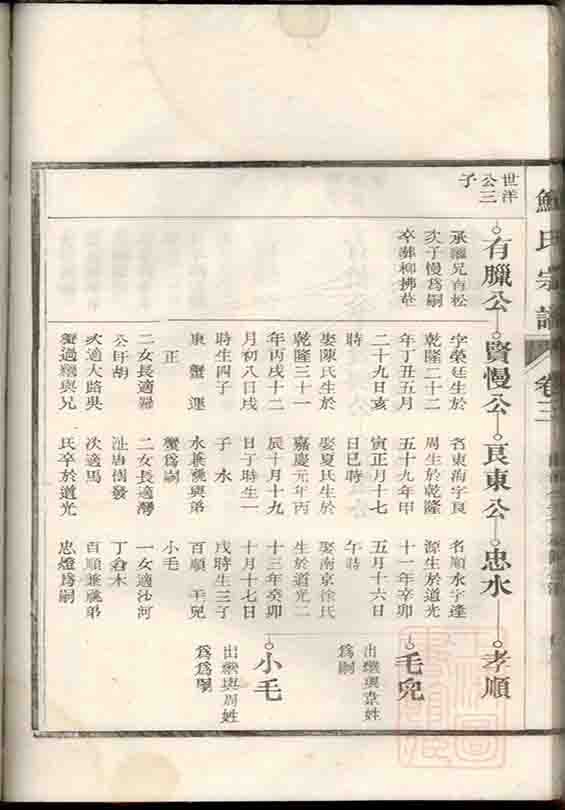 鮑氏宗譜
卷三
世洋
公三
子
有臘公
賢慢公
良東公
忠水
孝順
承繼兄有松
次子慢為嗣
卒葬柳拂莊
字榮廷生於
乾隆二十二
年丁丑五月
二十九日亥
時
娶陳氏生於
乾隆三十一
年丙戌十二
月初八日戌
時生四子
東 蟹 運
正
二女長適
公旴胡
次適大路吳
蟹過繼與兄
名東海字良
周生於乾隆
五十九年甲
寅正月十七
日巳時
娶夏氏生於
嘉慶元年丙
辰十月十九
日丁時生一
子 水
水兼祧與弟
蟹為嗣
二女長適灣
沚唐開發
次適馬
氏卒於道光
名順水字逢
源生於道光
十一年辛卯
五月十六日
午時
娶南京徐氏
生於道光二
十三年癸卯
十月十七日
戌時生三子
百順 毛兒
小毛
一女適沙河
丁春木
百順兼祧弟
忠燈為嗣
毛兒
出繼與韋姓
為嗣
小毛
出繼與周姓
為為嗣